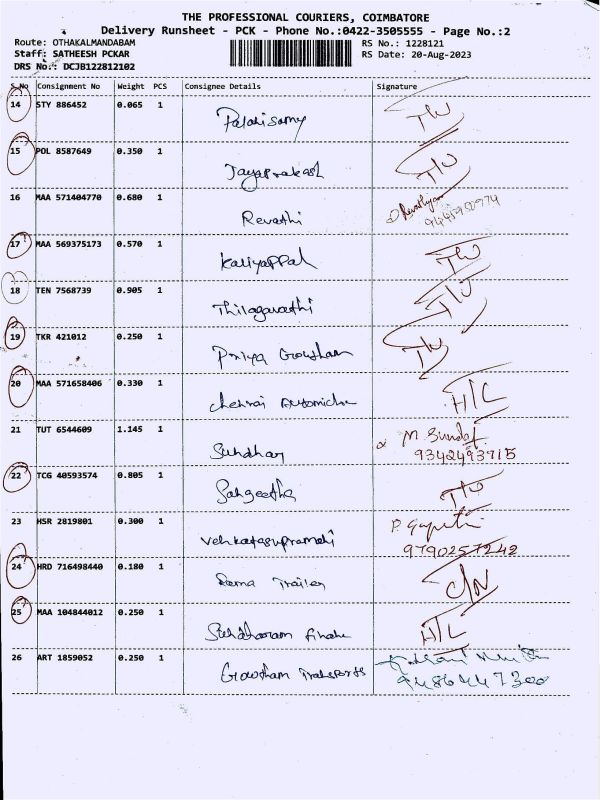 THE PROFESSIONAL COURIERS, COIMBATORE
Delivery Runsheet - PCK - Phone No.:0422-3505555 - Page No.:2
Route: OTHAKALMANDABAM RS No.: 1228121
Staff: SATHEESH PCKAR RS Date: 20-Aug-2023
DRS No.: DCJB122812102
S.No Consignment No Weight PCS Consignee Details Signature
14 STY 886452 0.065 1 Palanisamy
15 POL 8587649 0.350 1 Jayaprakash
16 MAA 571404770 0.680 1 Revathi
17 MAA 569375173 0.570 1 Kaliyappan
18 TEN 7568739 0.905 1 Thilagavathi
19 TKR 421012 0.250 1 Priya Gowtham
20 MAA 571658406 0.330 1 Chennai H/L
21 TUT 6544609 1.145 1 M. Sundar
9342493715
22 TCG 40593574 0.805 1 Sangeetha
23 HSR 2819801 0.300 1 P.
9790257242
24 HRD 716498440 0.180 1 Rama Trailer
25 MAA 104844012 0.250 1 H/L
26 ART 1859052 0.250 1 Gowtham Transports
9486447300